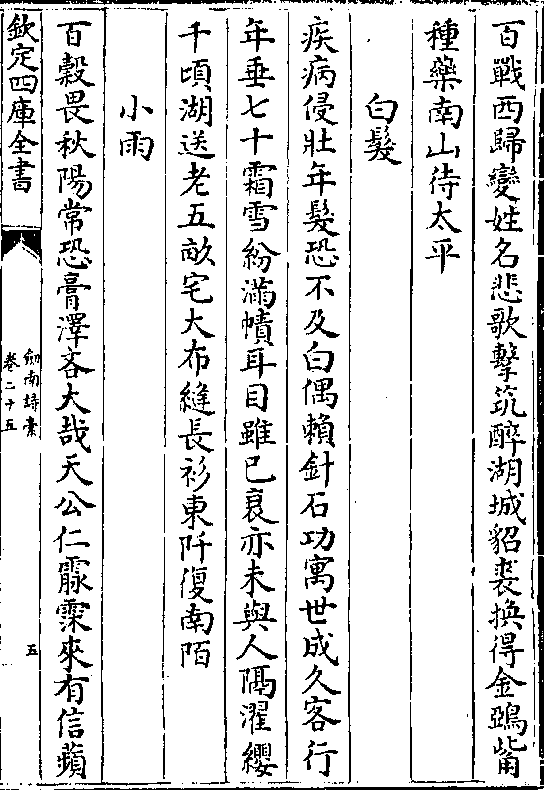 百戰西歸變姓名悲歌擊筑醉湖城貂裘換得金鵶觜
種藥南山待太平
白髮
疾病侵壯年髮恐不及白偶賴針石功寓世成久客行
年垂七十霜雪紛滿幘耳目雖已衰亦未與人隔濯纓
千頃湖送老五畝宅大布縫長衫東阡復南陌
小雨
百穀畏秋陽常恐膏澤吝大哉天公仁霢霂來有信蘋
欽定四庫全書
劎南詩稾
卷二十五
五